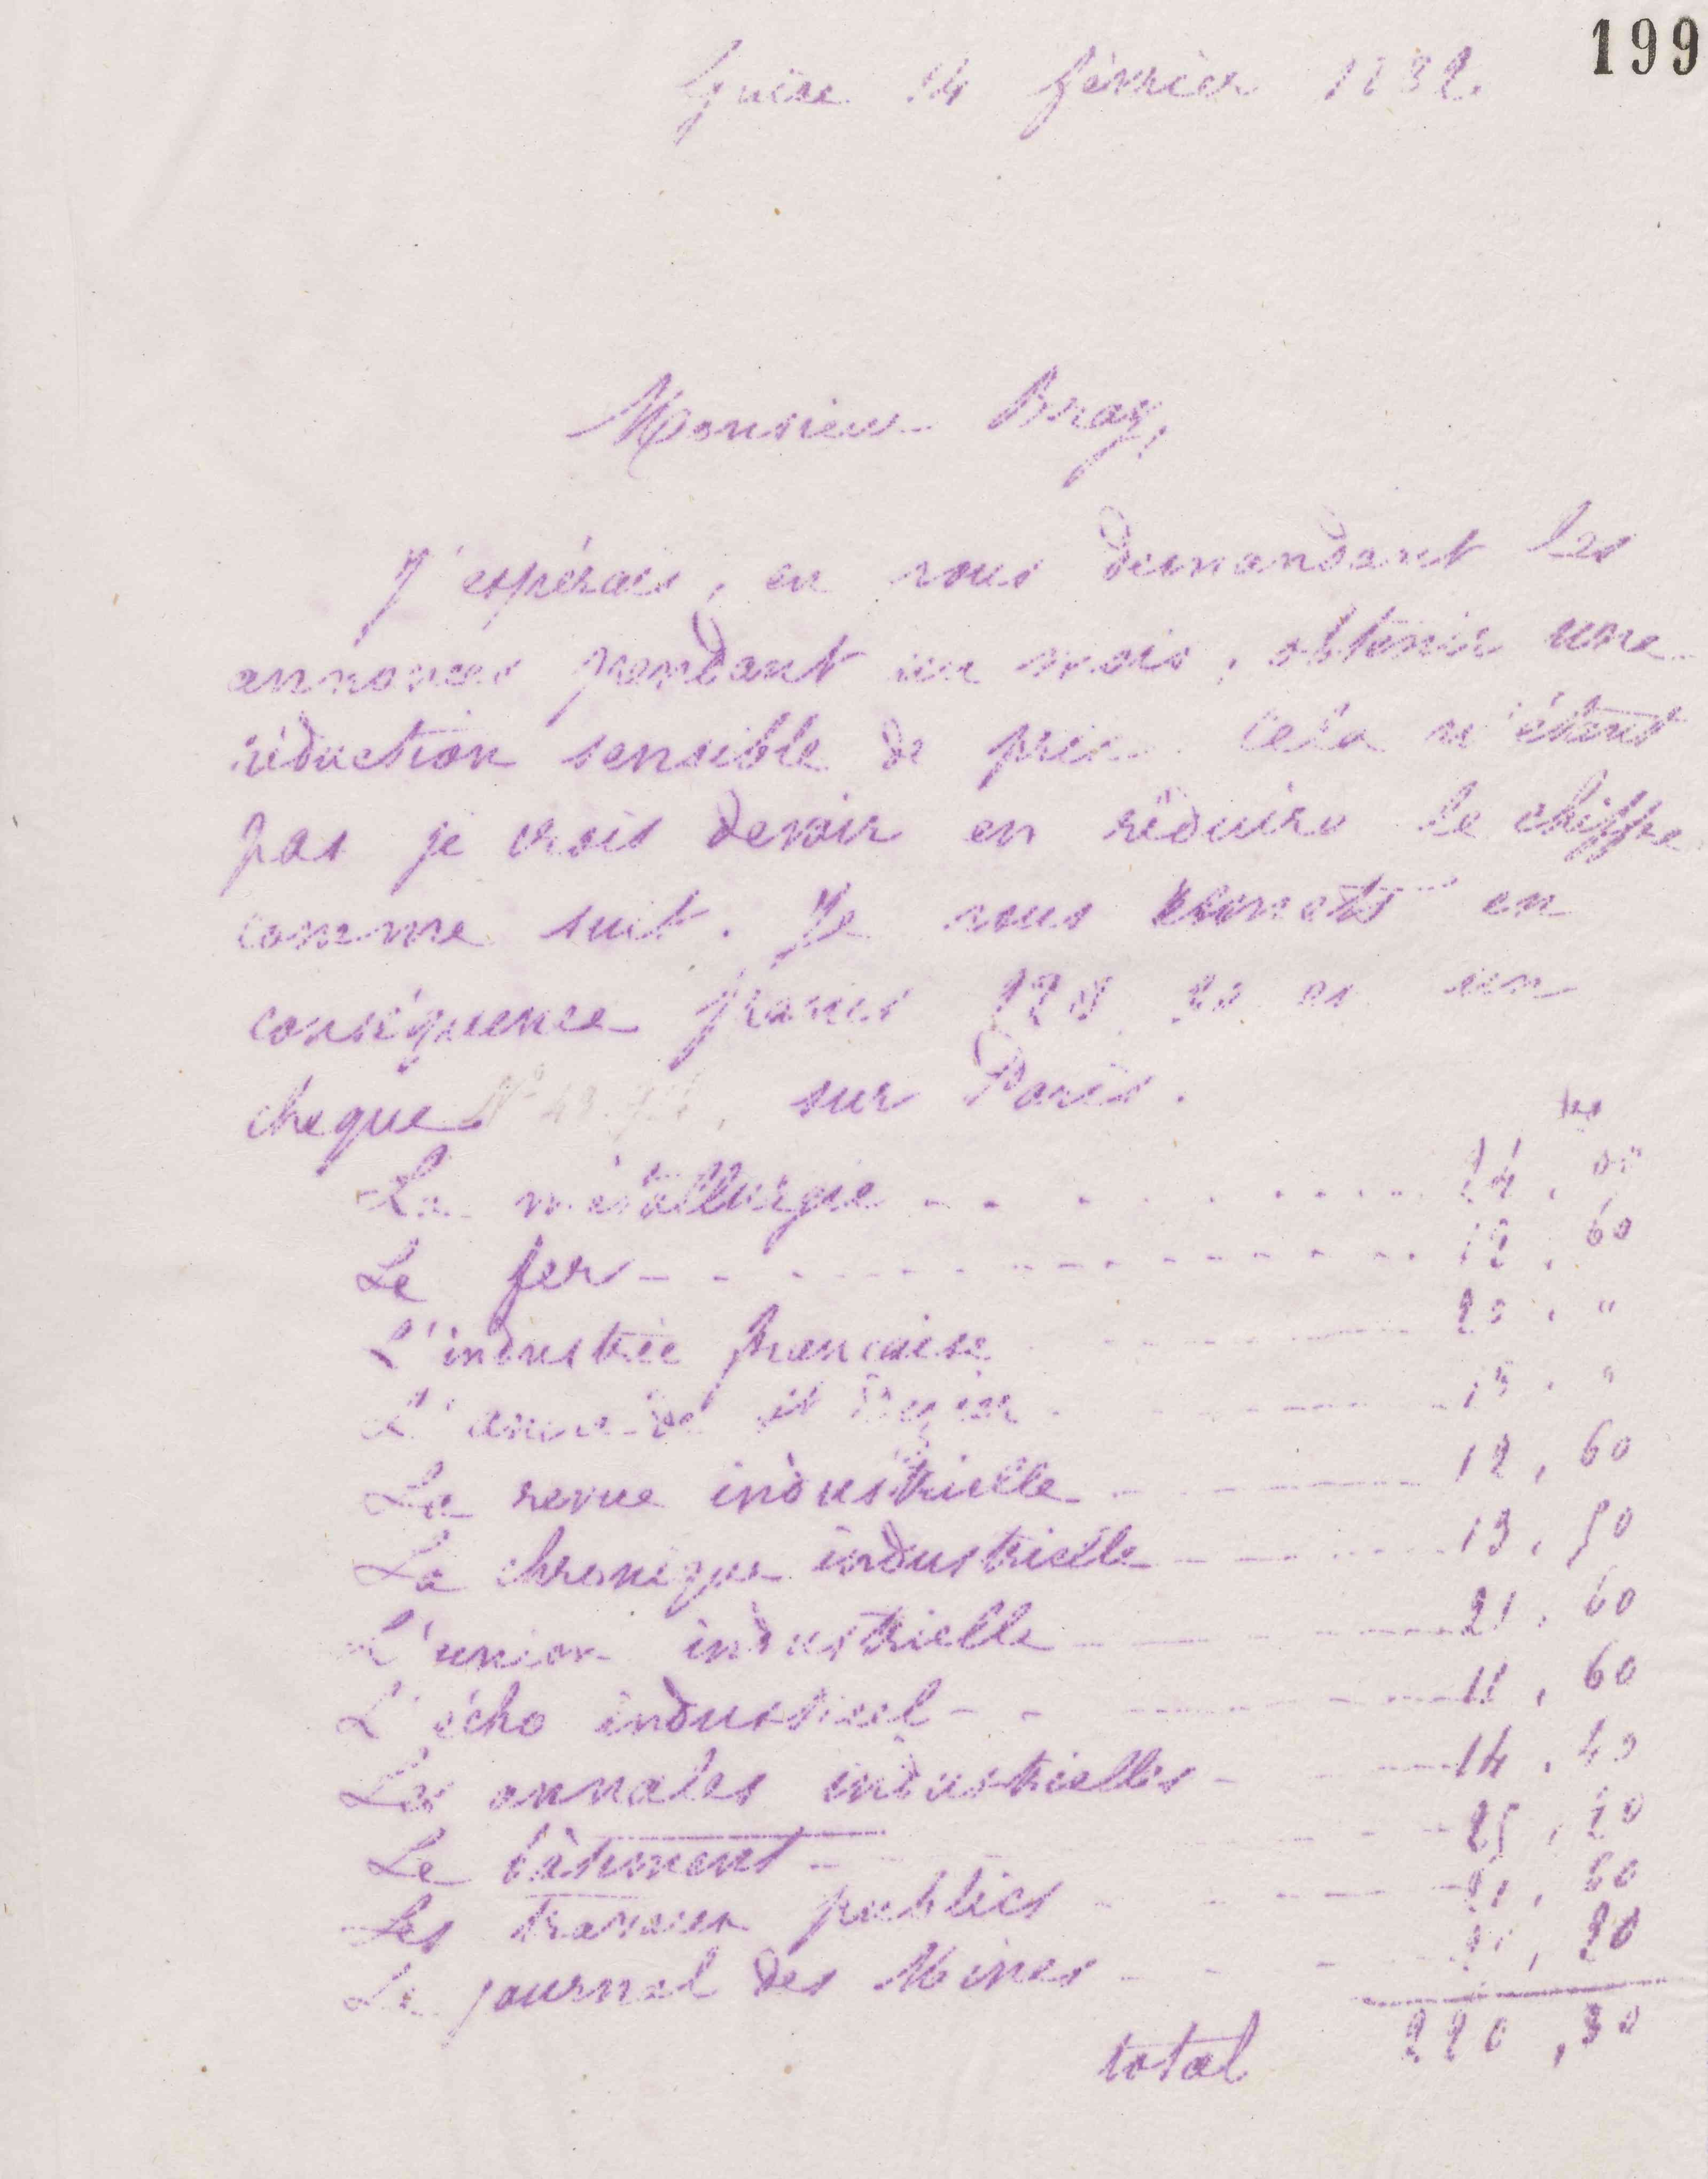 199
Guise 14 février 1882
Monsieur Bray,
J'espérais, en vous demandant les
annonces pendant un mois, obtenir une
réduction sensible de prix. Cela n'étant
pas je crois devoir en réduire le chiffre
comme suit. Je vous remets en
conséquence francs en un
cheque sur Paris.
La métallurgie 24
Le fer 12, 60
L'industrie française "
La revue industrielle 12, 60
La chronique industrielle 13, 50
L'union industrielle 21, 60
L'écho industriel 11, 60
Les annales industrielles 14, 40
Le bâtiment 25, 20
Les travaux publics
Le journal des Mines
total 220, 30